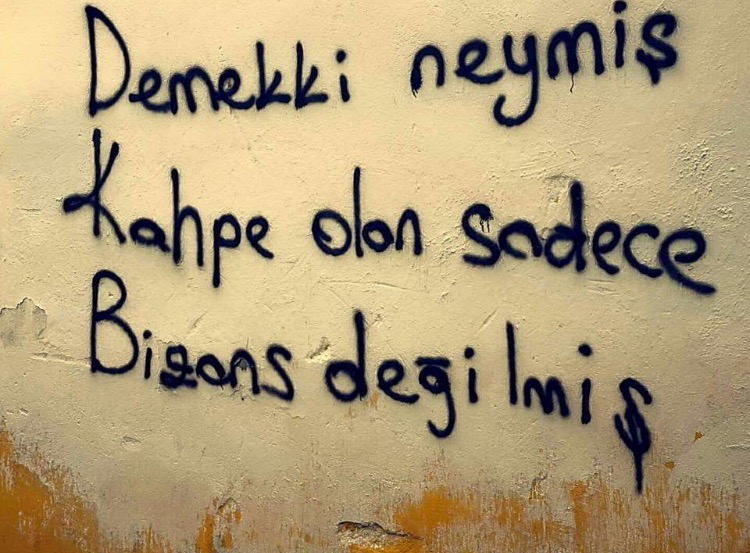 Demekki neymiş
Kahpe olan sadece
Bizans değilmiş